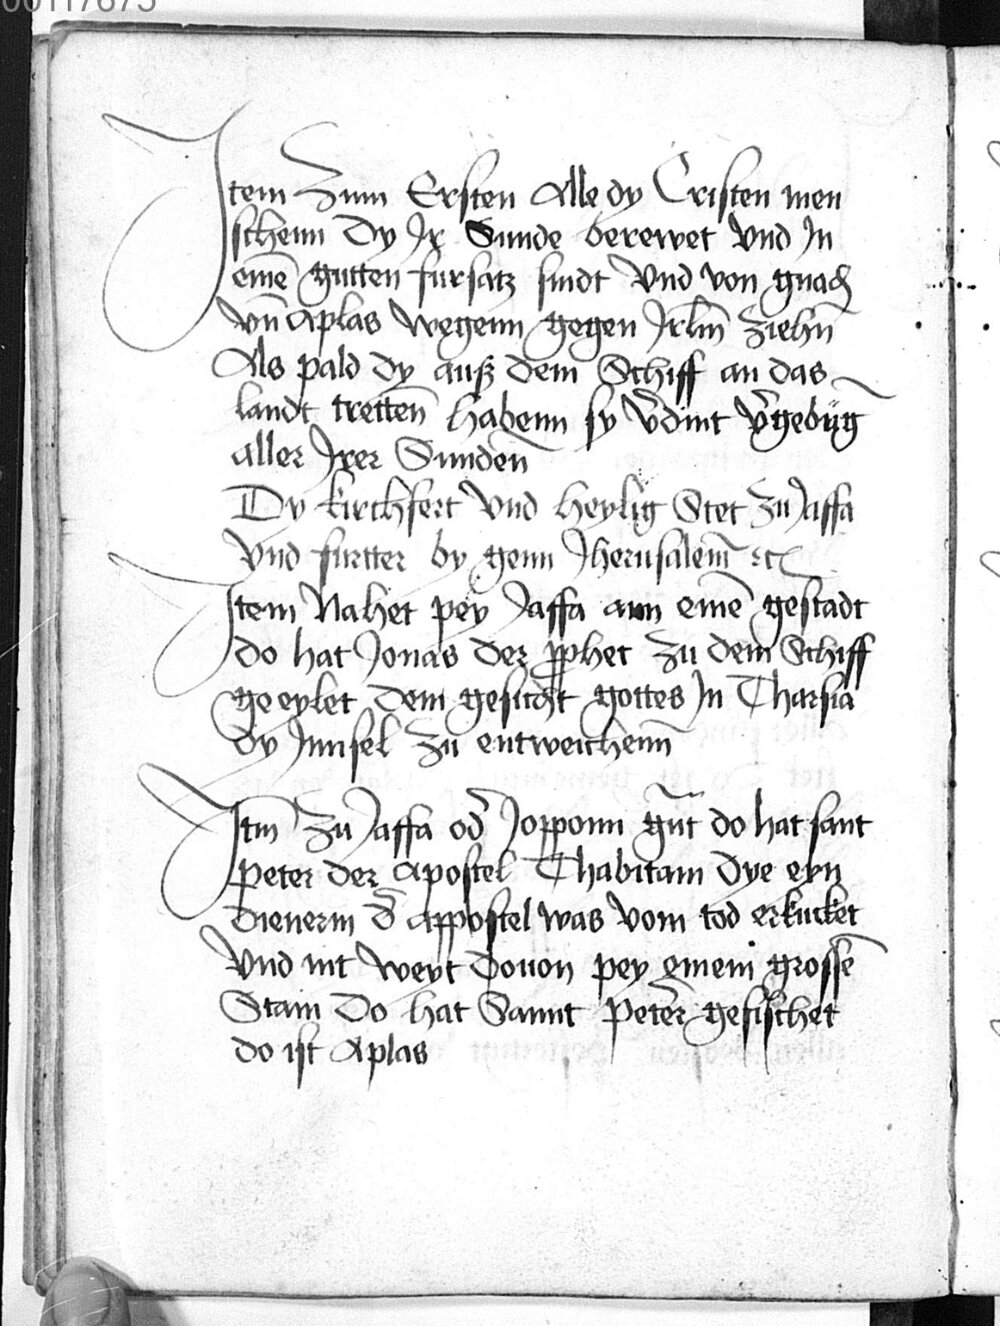 00117875
Item Zum Ersten Alle dy Cristen men
schenn Dy Ir Sunde berewet Vnd In
eine͂ gutten fursatz sindt Vnd von gnad
Vn͂ Aplas wegenn gegen Jrlm͂ Ziehn͂
Als pald dy auß dem Schiff an das
landt tretten͂ habenn sy v͂dint v͂gebu͂g
aller Irer Sunden͂
Dy kirchfert Vnd heylig Stet Zu Jaffa
Vnd furtter by genn Jherusalem͂ ꝛc
Item Nahet pey Jaffa ann eine͂ gestadt
do hat Jonas der ꝓphet zu dem Schiff
geeylet dem gesicht gottes In Tharsia
dy Innsel zu entweichenn͂
Itm Zu Jaffa od͂ Jopponn gn͂t do hat sant
Peter der Apostel Thabitam Dye eyn
Dienerin d͂ Appostel was vom tod erkucket
Vnd nit weyt Douon pey einem grosse͂
Stain Do hat Sannt Peter gefischet
do ist Aplas